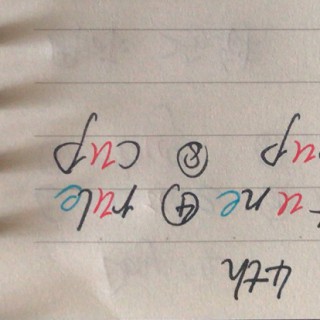 4th
une ④ rule
up ⑧ cup